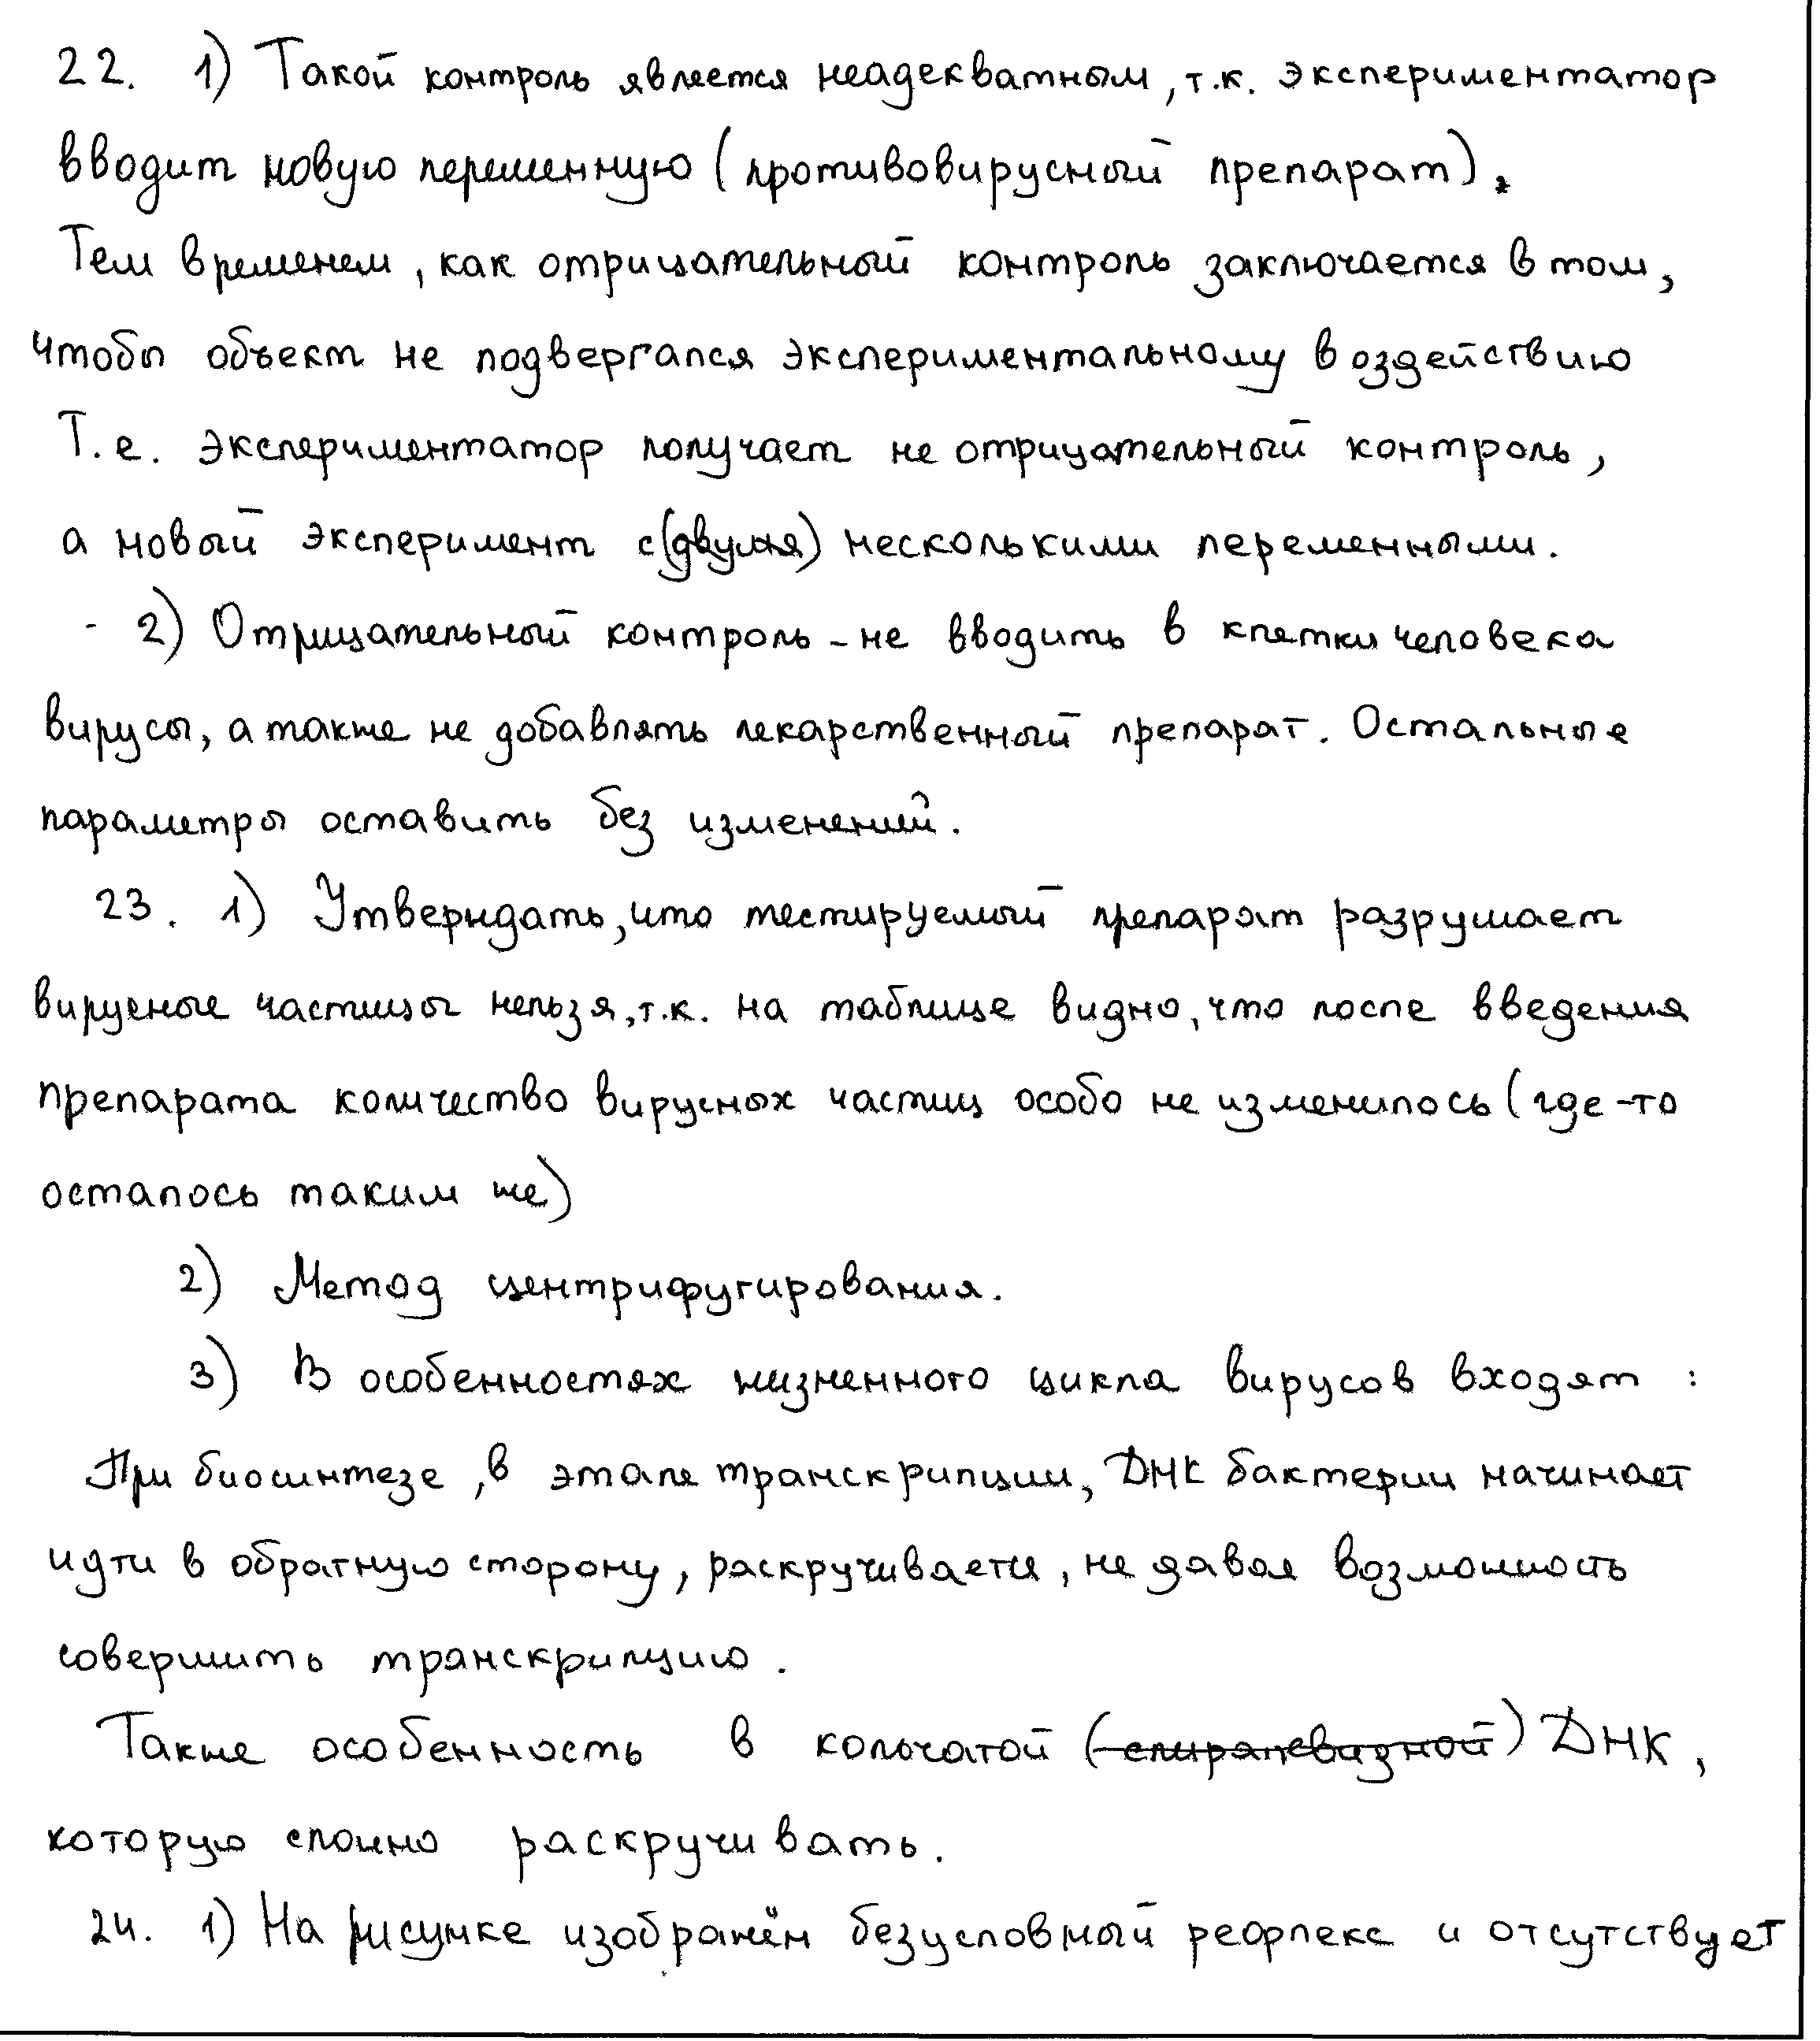 22. 1) Такой контроль является неадекватным, т.к. экспериментатор
вводит новую переменную (противовирусный препарат).
Тем временем, как отрицательный контроль заключается в том,
чтобы объект не подвергался экспериментальному воздействию
Т.е. экспериментатор получает не отрицательный контроль,
а новый эксперимент с (двумя) несколькими переменными.
- 2) Отрицательный контроль - не вводить в клетки человека
вирусы, а также не добавлять лекарственный препарат. Остальные
параметры оставить без изменений.
23. 1) Утверждать, что тестируемый препарат разрушает
вирусные частицы нельзя, т.к. на таблице видно, что после введения
препарата количество вирусных частиц особо не изменилось (где-то
осталось таким же)
2) Метод центрифугирования.
3) В особенностях жизненного цикла вирусов входят :
При биосинтезе, в этапе транскрипции, ДНК бактерии начинает
идти в обратную сторону, раскручивается, не давая возможность
совершить транскрипцию.
Также особенность в кольчатой (спиралевидной) ДНК,
которую сложно раскручивать.
24. 1) На рисунке изображён безусловный рефлекс и отсутствует